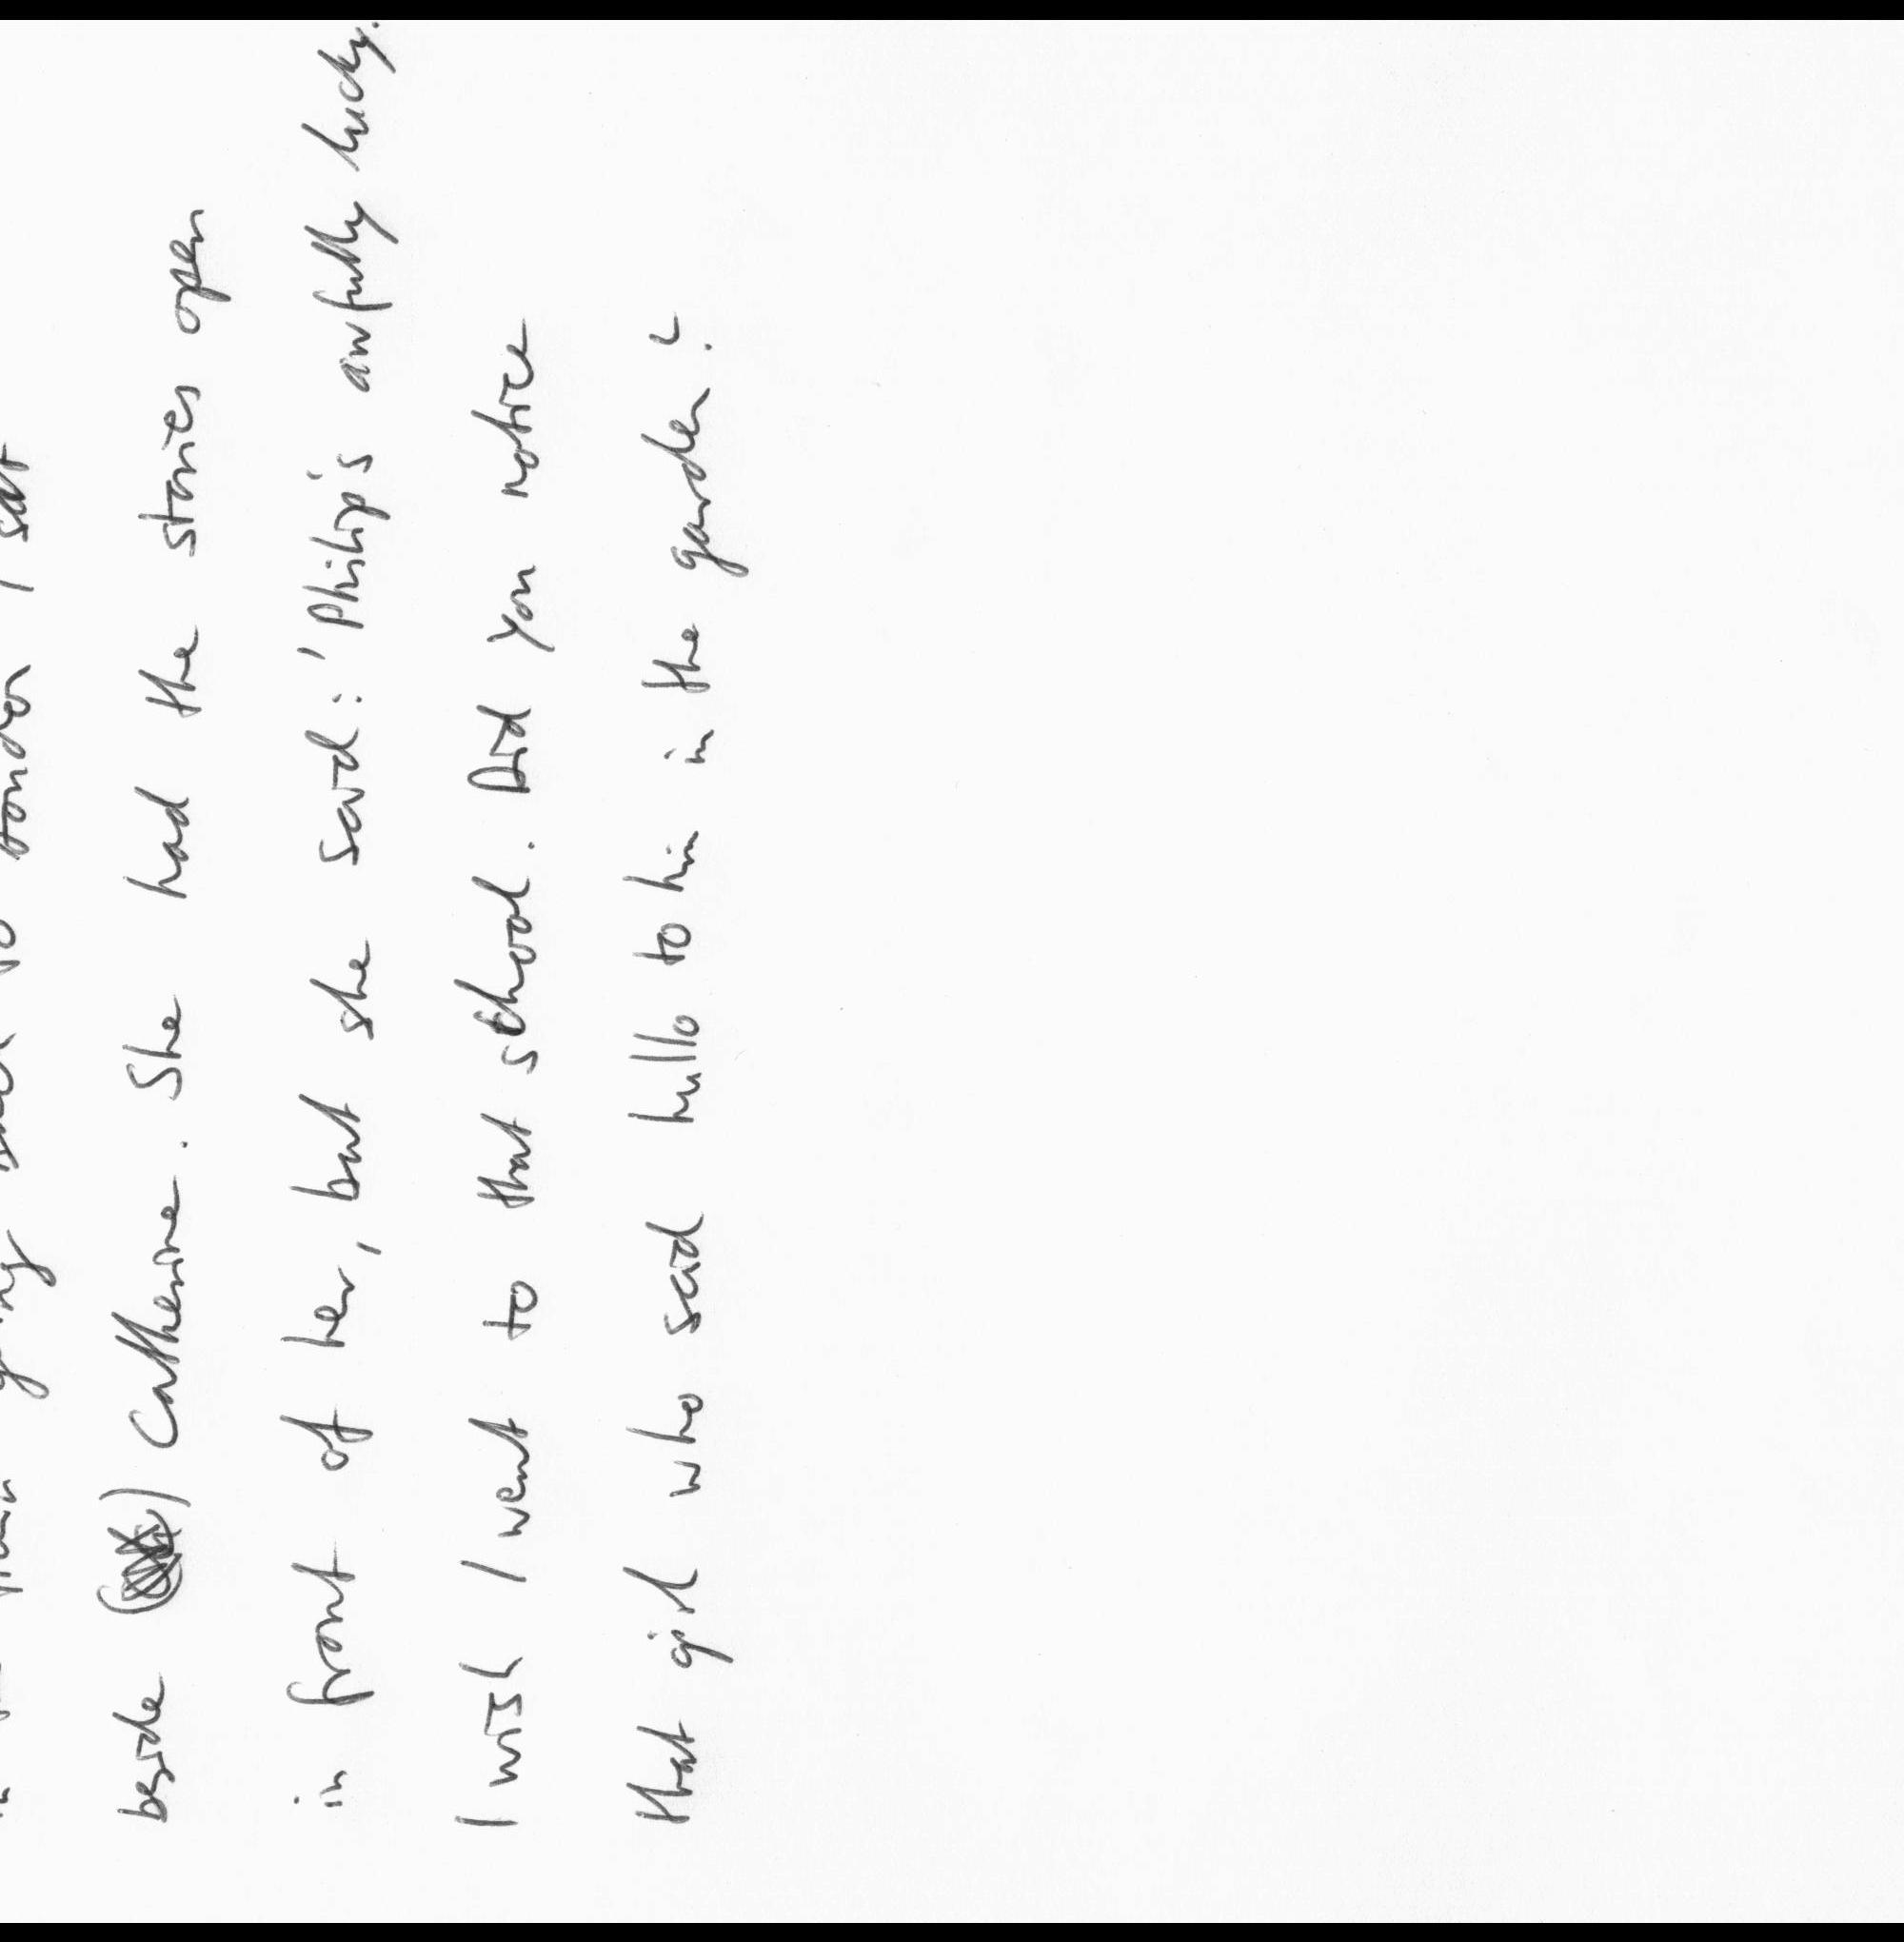 in the train going back to London I sat
beside Catherine. She had the stories open
in front of her, but she said: 'Philip's awfully lucky.
I wish I went to that school. Did you notice
that girl who said hullo to him in the garden?